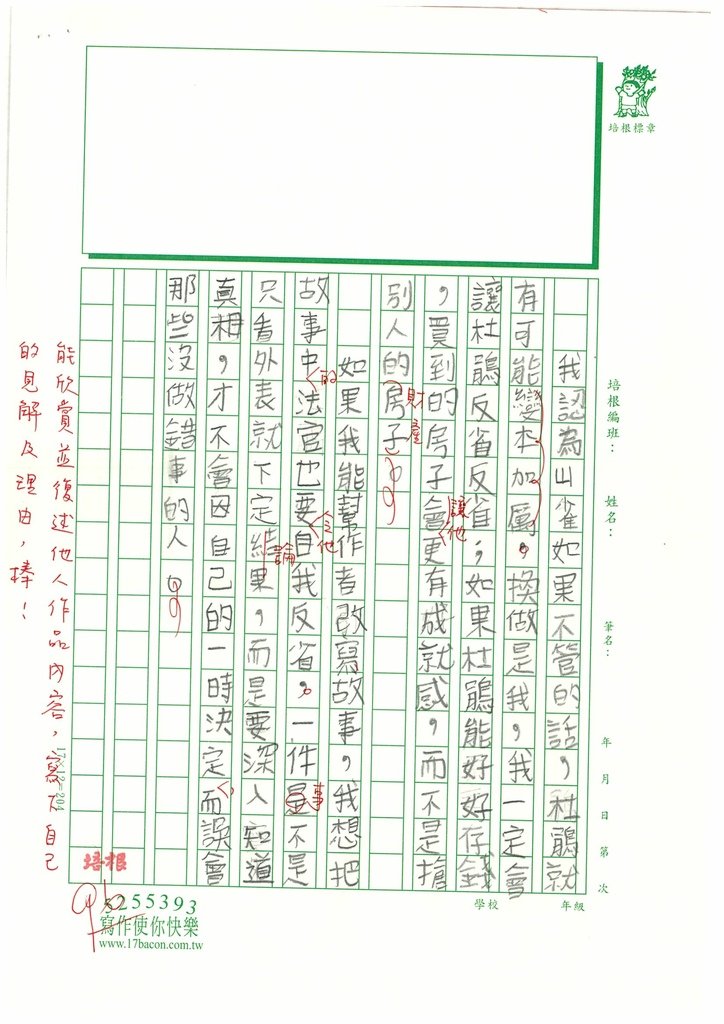 培根標章
培根編班：
姓名：
筆名：
年 月 日 第 次
學校
年級
我認為山雀如果不管的話，杜鵑就
有可能變本加厲。換做是我，我一定會
讓杜鵑反省反省，如果杜鵑能好好存錢
，買到的房子會更有成就感，而不是搶
讓他
別人的房子。
財產
如果我能幫作者改寫故事，我想把
故事中法官也要自我反省。一件是不是
的
令他
事
只看外表就下定結果，而是要深入知道
論
真相，才不會因自己的一時決定而誤會
那些沒做錯事的人。
能欣賞並復述他人作品內容，寫下自己
的見解及理由，棒！
17×12=204
培根
5255393
寫作使你快樂
www.17bacon.com.tw